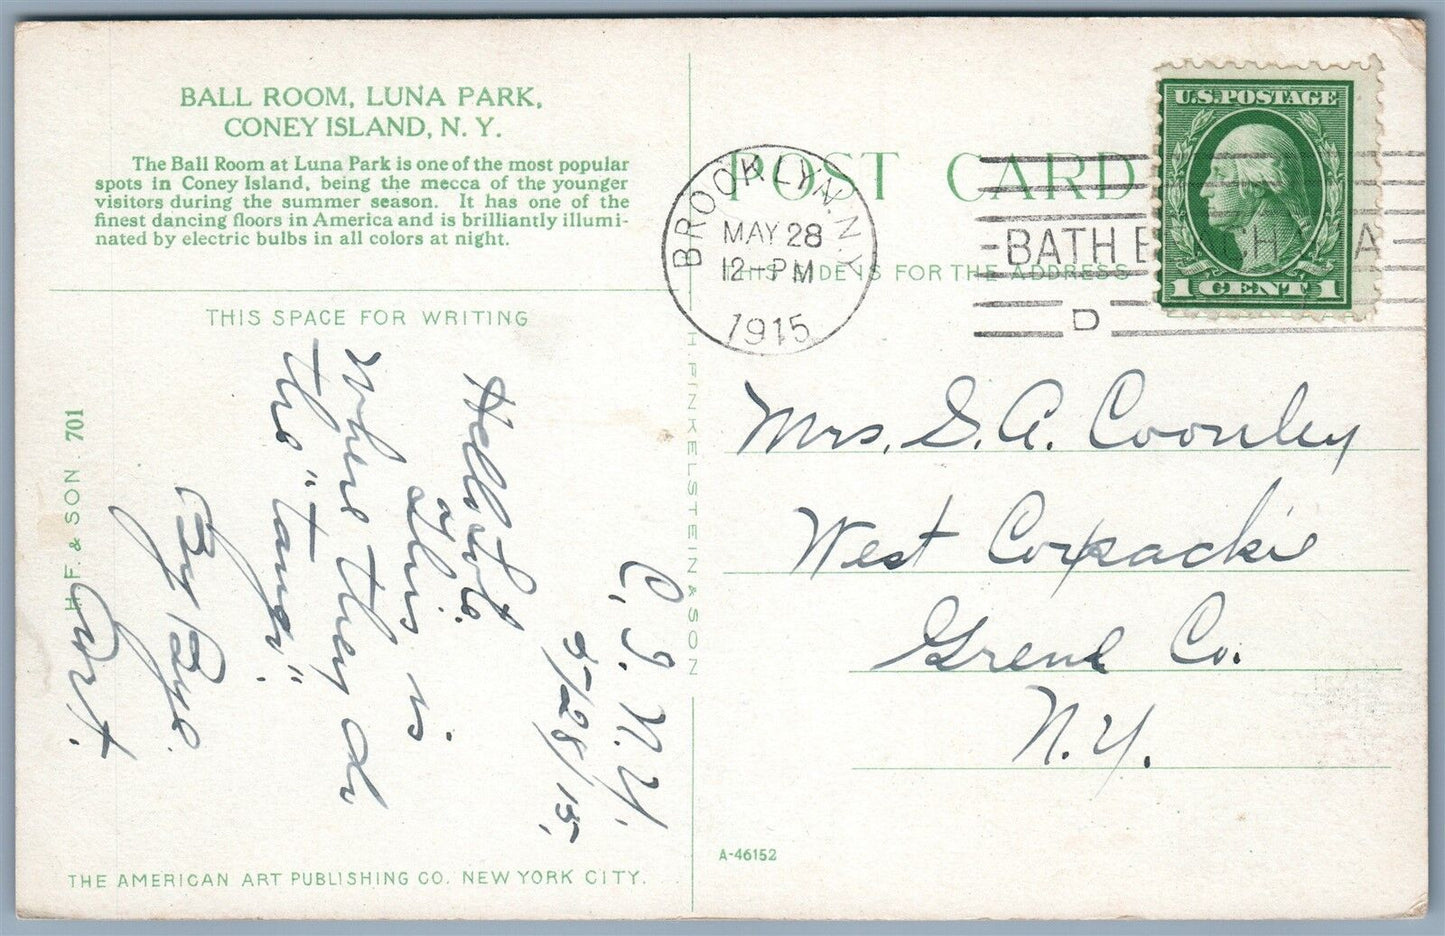 BALL ROOM, LUNA PARK,
CONEY ISLAND, N. Y.
The Ball Room at Luna Park is one of the most popular
spots in Coney Island, being the mecca of the younger
visitors during the summer season. It has one of the
finest dancing floors in America and is brilliantly illumi-
nated by electric bulbs in all colors at night.
THIS SPACE FOR WRITING
C. I. N.Y.
5/28/15.
Hello
This is
where they do
the "tango".
By Bye.
Cort.
H. FINKELSTEIN & SON
H. F. & SON 701
THE AMERICAN ART PUBLISHING CO. NEW YORK CITY.
POST CARD
THIS SIDE IS FOR THE ADDRESS
BROOKLYN, N.Y.
MAY 28
12-PM
1915
BATH BEACH STA
D
U.S. POSTAGE
1 CENT 1
Mrs. S. A. Coonley
West Coxsackie
Grene Co.
N.Y.
A-46152